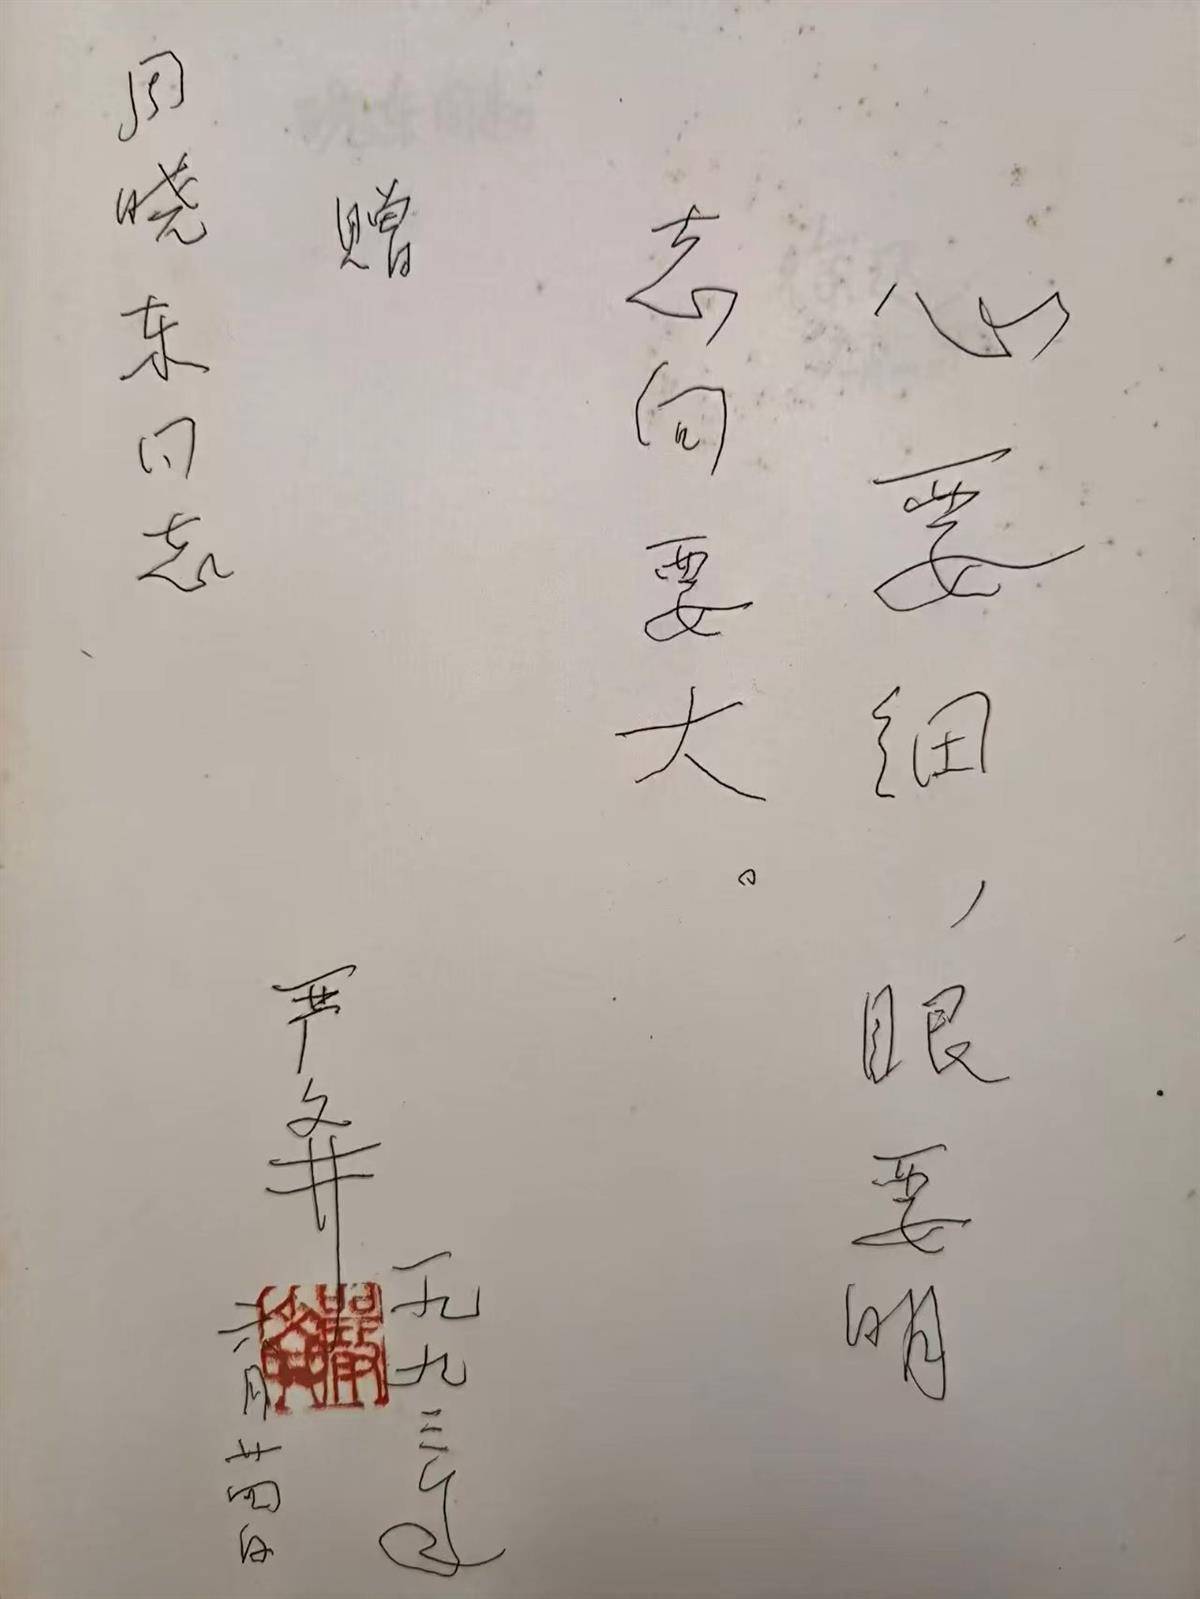 心要细，眼要明
志向要大。
赠
周晓东同志
严文井
一九九三年
六月十四日